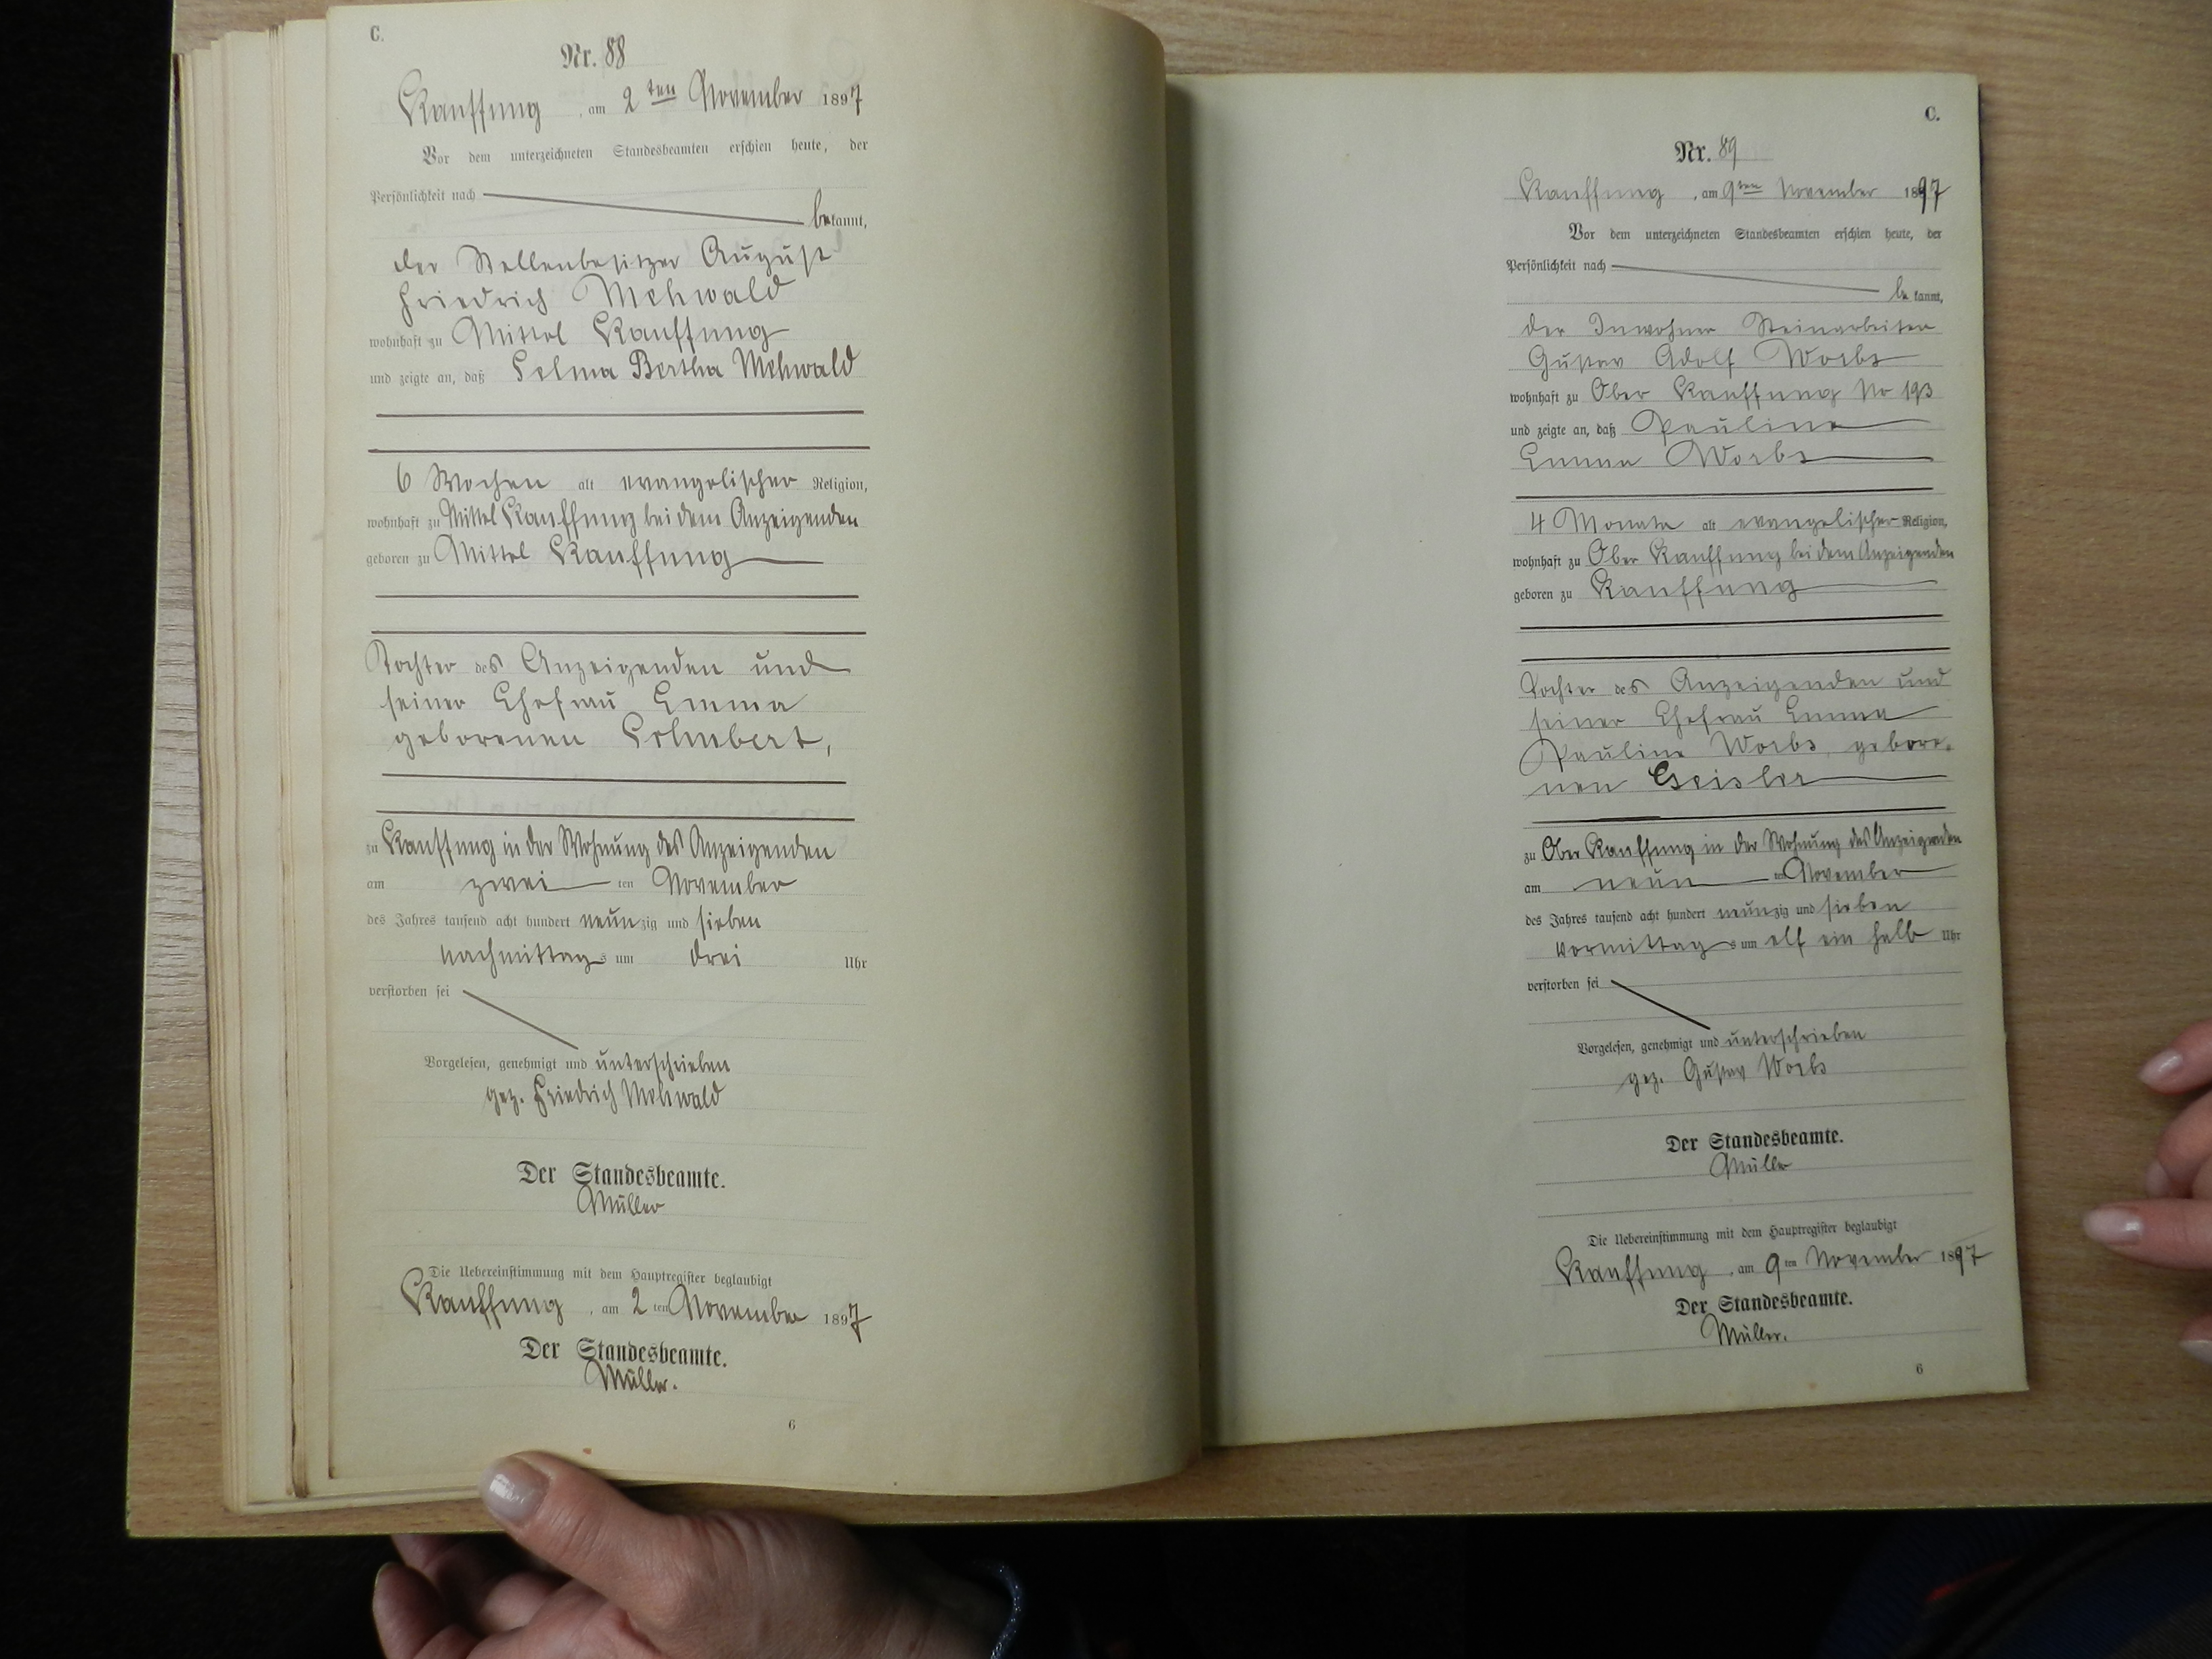 C.
Nr. 88
Kauffung, am 2ten November 1897
Vor dem unterzeichneten Standesbeamten erschien heute, der
Persönlichkeit nach
bekannt,
der Stellenbesitzer August
Friedrich Mehwald
wohnhaft zu Mittel Kauffung
und zeigte an, daß Selma Bertha Mehwald
6 Wochen alt evangelischer Religion,
wohnhaft zu Mittel Kauffung bei dem Anzeigenden
geboren zu Mittel Kauffung
Tochter des Anzeigenden und
seiner Ehefrau Emma
geborenen
zu Kauffung in der Wohnung des Anzeigenden
am zwei ten November
des Jahres tausend acht hundert neunzig und sieben
nachmittags um drei Uhr
verstorben sei
Vorgelesen, genehmigt und unterschrieben
gez. Friedrich Mehwald
Der Standesbeamte.
Müller
Die Uebereinstimmung mit dem Hauptregister beglaubigt
Kauffung, am 2ten November 1897
Der Standesbeamte.
Müller.
6
C.
Nr. 89
Kauffung, am 9ten November 1897
Vor dem unterzeichneten Standesbeamten erschien heute, der
Persönlichkeit nach
bekannt,
der Inwohner Steinarbeiter
Gustav Adolf Worbs
wohnhaft zu Ober Kauffung No 193
und zeigte an, daß Pauline
Emma Worbs
4 Monate alt evangelischer Religion,
wohnhaft zu Ober Kauffung bei dem Anzeigenden
geboren zu Kauffung
Tochter des Anzeigenden und
seiner Ehefrau Emma
Pauline Worbs, gebore-
nen Geisler
zu Ober Kauffung in der Wohnung des Anzeigenden
am neun ten November
des Jahres tausend acht hundert neunzig und sieben
vormittags um elf ein halb Uhr
verstorben sei
Vorgelesen, genehmigt und unterschrieben
gez. Gustav Worbs
Der Standesbeamte.
Müller
Die Uebereinstimmung mit dem Hauptregister beglaubigt
Kauffung, am 9ten November 1897
Der Standesbeamte.
Müller.
6